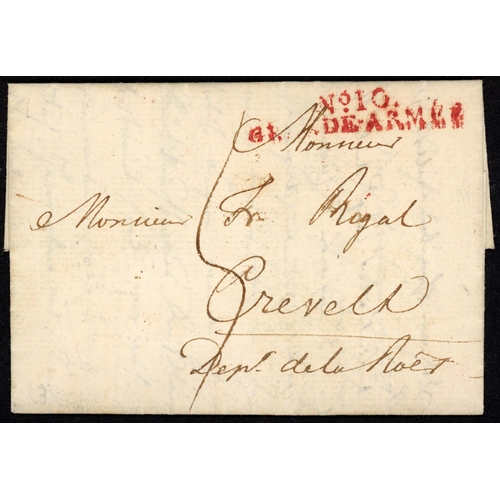 No 10.
GRANDE-ARMÉE
Monsieur
Monsieur Fr Rigal
a
Crevelt
Dept de la Roër